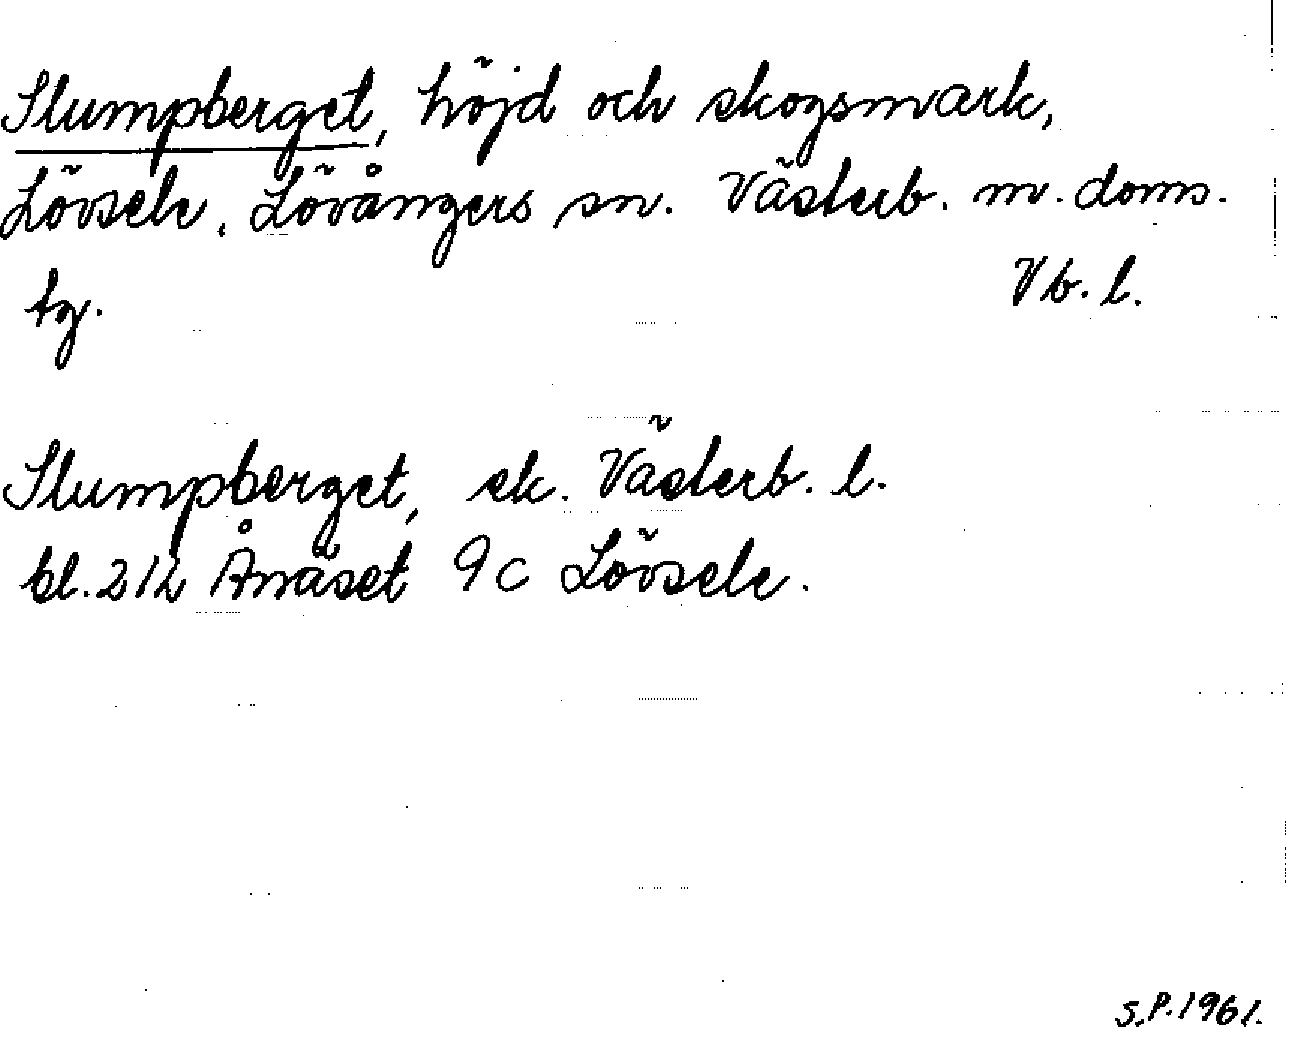 Slumpberget, höjd och skogsmark,
Lövsele, Lövångers sn. Västerb. n. doms.
tg. Vb. l.
Slumpberget, ek. Västerb. l.
bl. 212 Ånäset 9c Lövsele.
S.P. 1961.